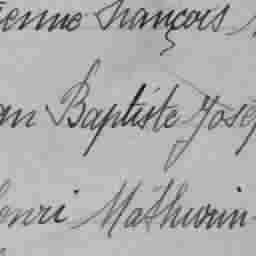 ienne François
an Baptiste Josep
enri Mathurin